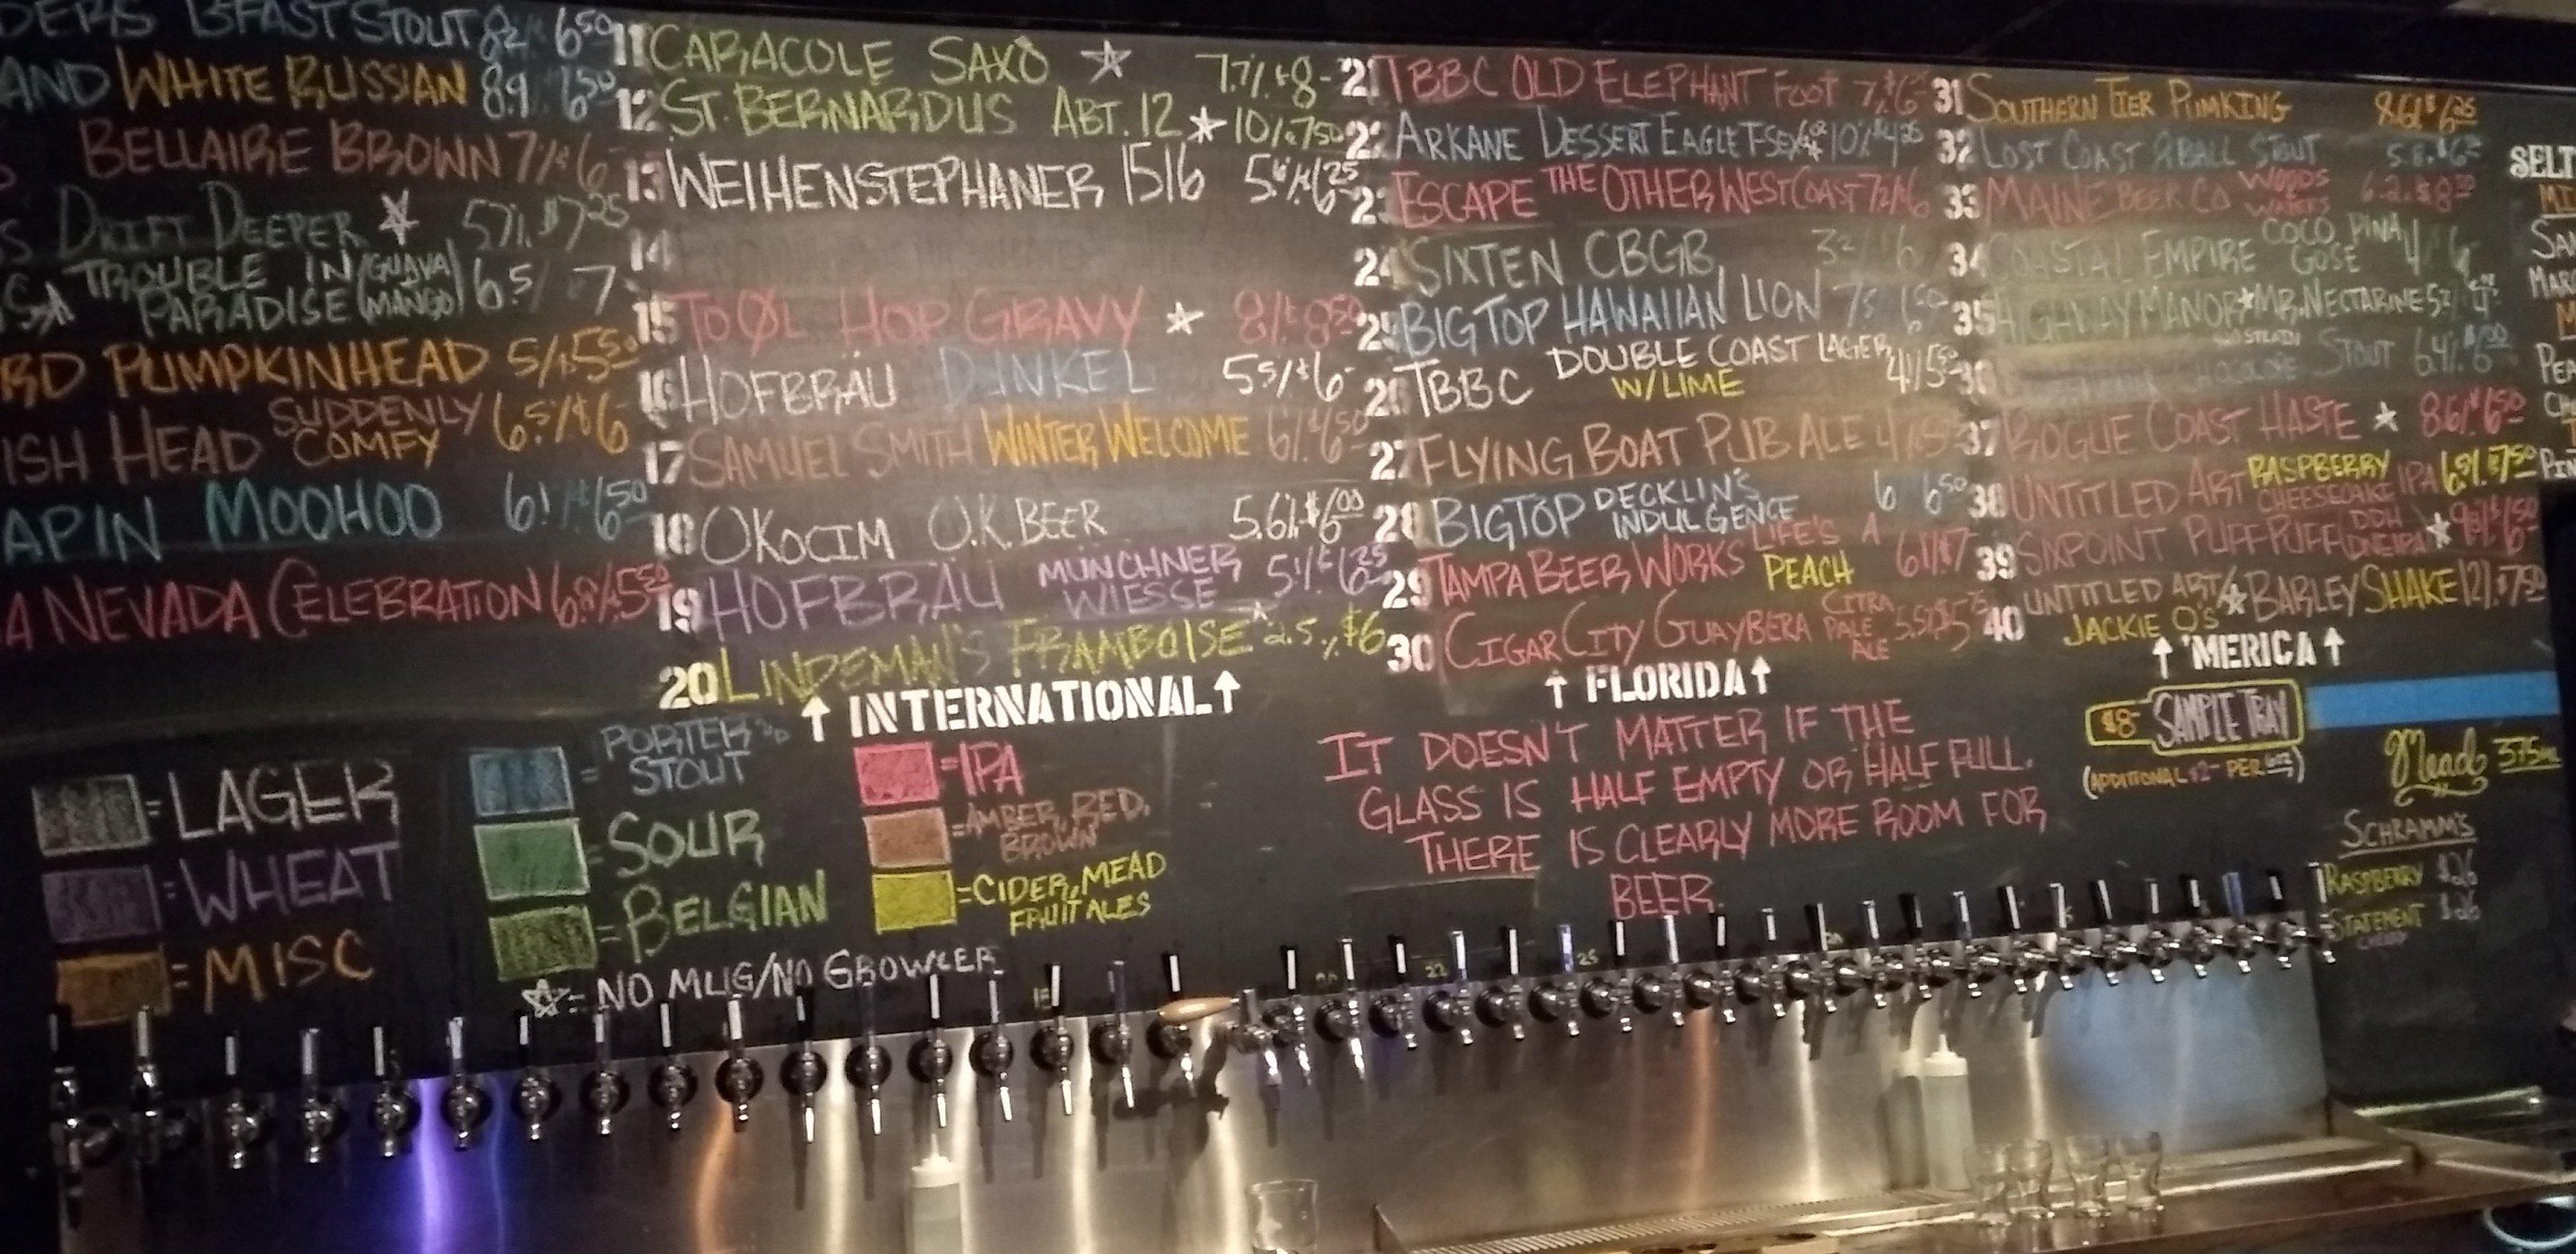 DERS BFAST STOUT 82% 650
AND WHITE RUSSIAN 8.9% 650
BELLAIRE BROWN 7% $6
S DRIFT DEEPER ☆ 57% $7 25
S ☆ TROUBLE IN PARADISE (GUAVA MANGO) 6.5/ 7
RD PUMPKINHEAD 5/ 550
ISH HEAD SUDDENLY COMFY 6.5% $6
APIN MOOHOO 61% 650
A NEVADA CELEBRATION 6.8% 550
11 CARACOLE SAXO ☆ 77% $8-
12 ST. BERNARDUS ABT. 12 ☆ 10% 750
13 WEIHENSTEPHANER 1516 56% 625
14
15 TO ØL HOP GRAVY ☆ 8% 850
16 HOFBRÄU DUNKEL 55% $6-
17 SAMUEL SMITH WINTER WELCOME 6% 650
18 OKOCIM O.K. BEER 5.6% $600
19 HOFBRÄU MÜNCHNER WIESSE 51% 625
20 LINDEMAN'S FRAMBOISE ☆ 2.5% $6
↑ INTERNATIONAL ↑
21 TBBC OLD ELEPHANT FOOT 7% $6
22 ARKANE DESSERT EAGLE 10%
23 ESCAPE THE OTHER WEST COAST 72% 6
24 SIXTEN CBGB 32 6
25 BIG TOP HAWAIIAN LION 75
26 TBBC DOUBLE COAST LAGER W/LIME
27 FLYING BOAT PUB ALE
28 BIG TOP DECKLIN'S INDULGENCE 6 650
29 TAMPA BEER WORKS LIFE'S A PEACH 61% $7
30 CIGAR CITY GUAYBERA CITRA PALE ALE
↑ FLORIDA ↑
31 SOUTHERN TIER PUMKING 8.6% $625
32 LOST COAST 8 BALL STOUT 5.8
33 MAINE BEER CO WOODS WATERS 6.2
34 COASTAL EMPIRE COCO PINA GOSE 4 6
35 HIGHWAY MANOR ☆ MR. NECTARINE
36 STOUT 64%
37 ROGUE COAST HASTE ☆ 86% 650
38 UNTITLED ART RASPBERRY CHEESECAKE IPA 6.9% $750
39 SIXPOINT PUFF PUFF (DDH DNEIPA) ☆
40 UNTITLED ART/ JACKIE O'S ☆ BARLEY SHAKE 12% $750
↑ 'MERICA ↑
SELT
SAN
MAR
PEA
CH
PIN
= LAGER
= WHEAT
= MISC
= PORTER STOUT
= SOUR
= BELGIAN
= IPA
= AMBER, RED, BROWN
= CIDER, MEAD FRUIT ALES
☆ = NO MUG/NO GROWLER
IT DOESN'T MATTER IF THE
GLASS IS HALF EMPTY OR HALF FULL.
THERE IS CLEARLY MORE ROOM FOR
BEER.
$8- SAMPLE TRAY
(ADDITIONAL $2- PER 6OZ)
Mead 375ML
SCHRAMM'S
RASPBERRY $26
STATEMENT $26
CHERRY
22
25